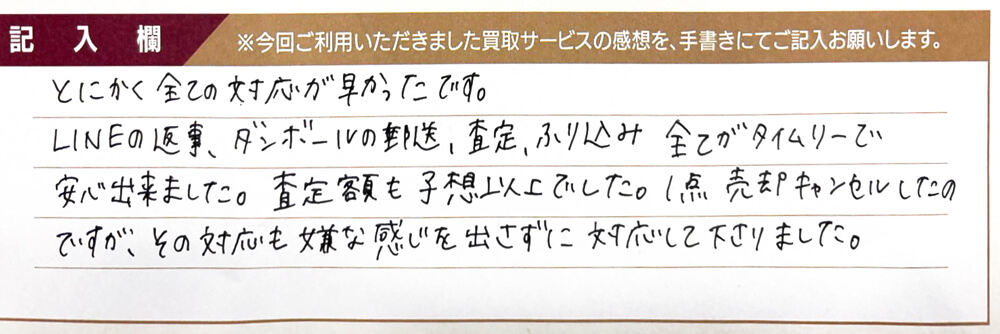 記入欄
※今回ご利用いただきました買取サービスの感想を、手書きにてご記入お願いします。
とにかく全ての対応が早かったです。
LINEの返事、ダンボールの郵送、査定、ふり込み 全てがタイムリーで
安心出来ました。査定額も予想以上でした。1点 売却キャンセルしたの
ですが、その対応も嫌な感じを出さずに対応して下さりました。